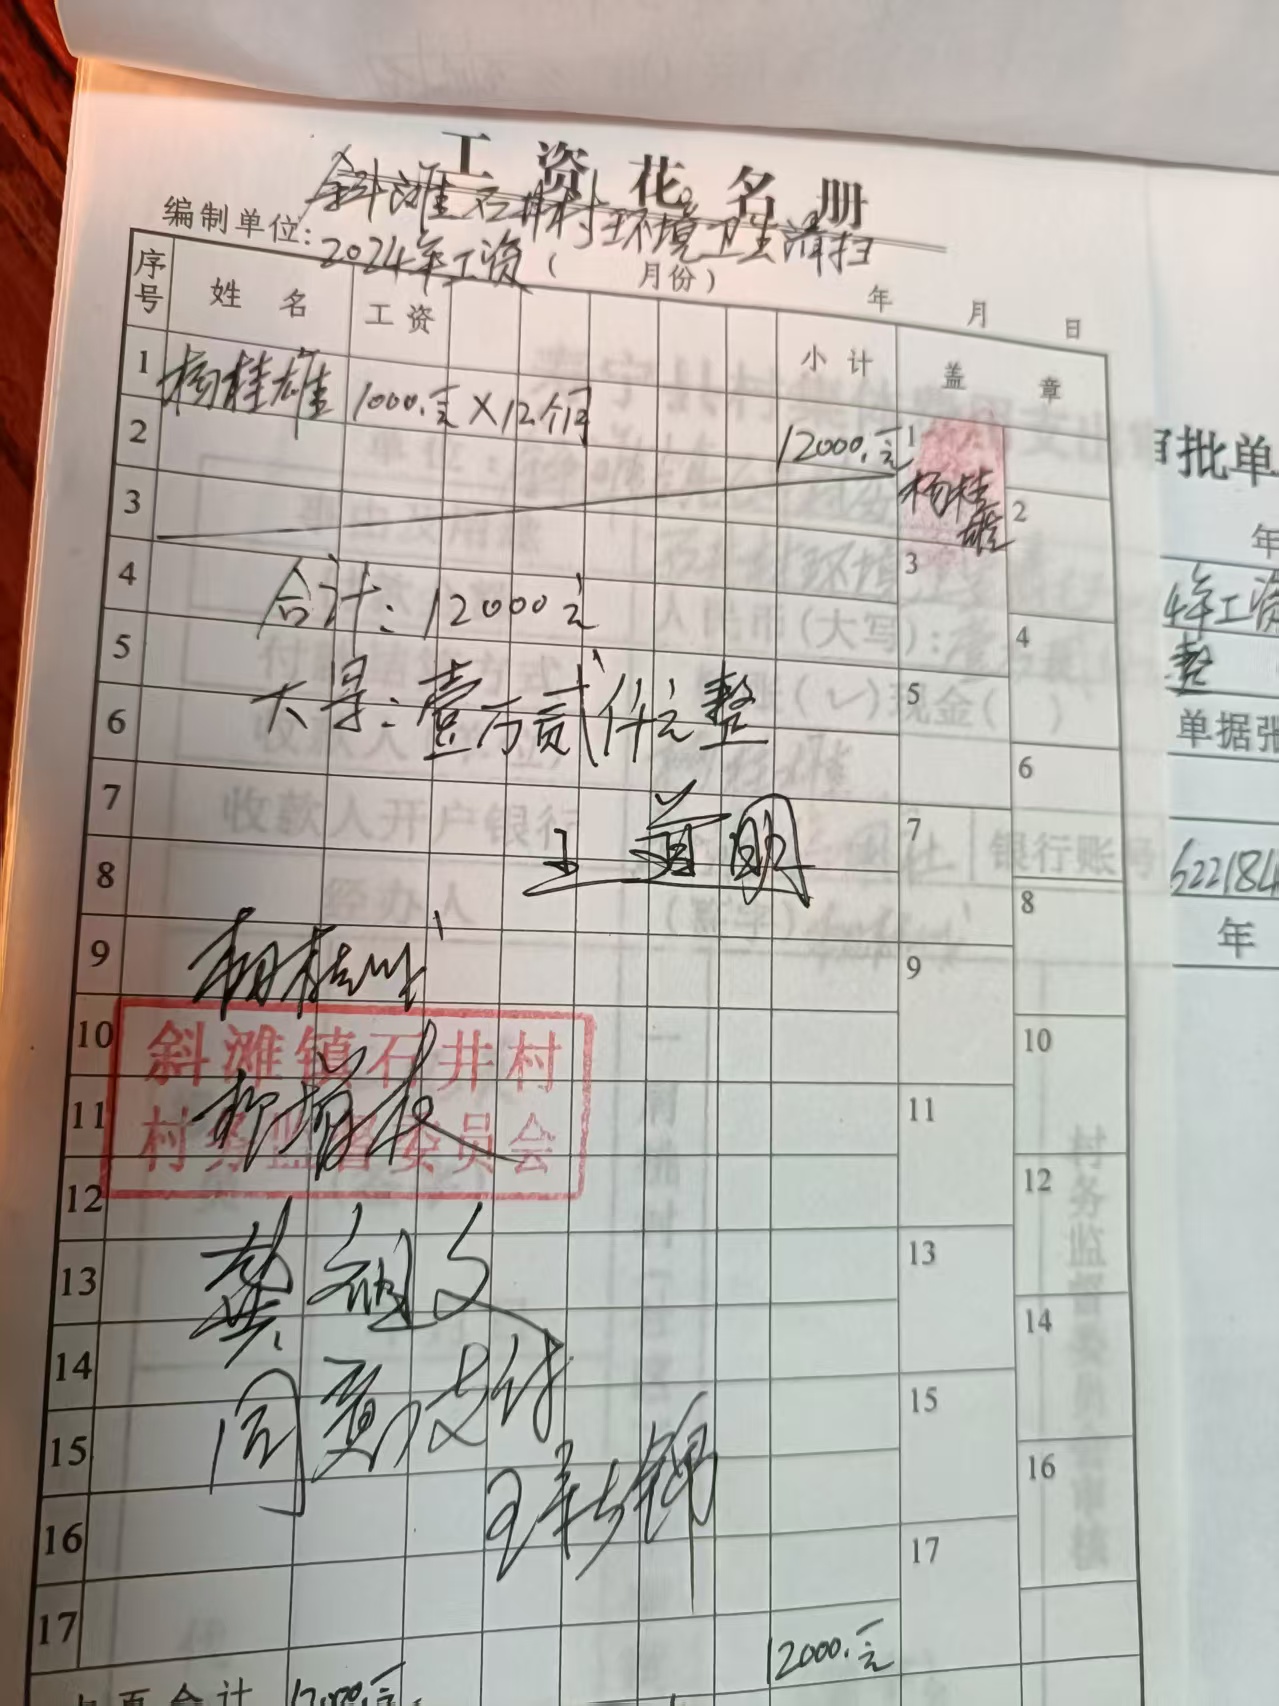 工资花名册
编制单位: 斜滩石井村环境卫生清扫
2024年工资 ( 月份) 年 月 日
序号 姓名 工资 小计 盖章
1 杨桂雄 1000.元×12个月 12000.元 1 杨桂雄
2 2
3 3
4 合计: 12000元 4
5 大写: 壹万贰仟元整 5
6 6
7 7
8 王道明 8
9 9
10 斜滩镇石井村 10
11 村务监督委员会 11
12 12
13 黄祖文 13
14 同意支付 14
15 15
16 16
17 17
12000.元
本页合计 12000.元
审批单
年
4年工资
整
单据张
622184
年